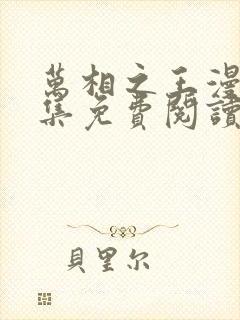 萬相之王漫
集免費閱讀
貝里尔